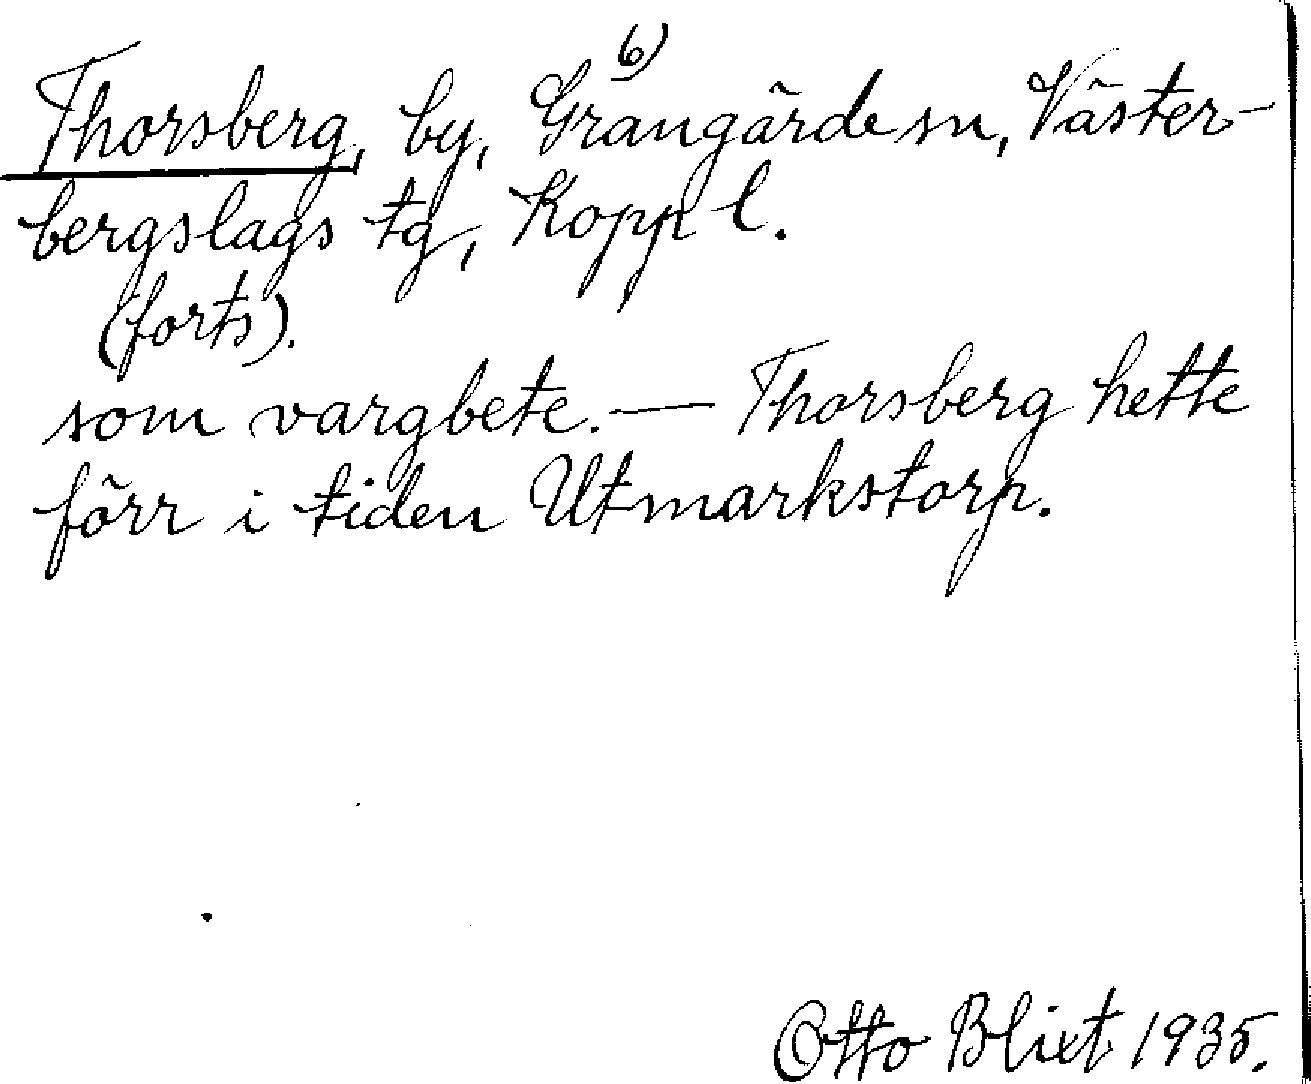 6)
Thorsberg, by, Grangärde sn, Väster-
bergslags tg, Kopp l.
(forts).
som vargbete. — Thorsberg hette
förr i tiden Utmarkstorp.
Otto Blixt 1935.